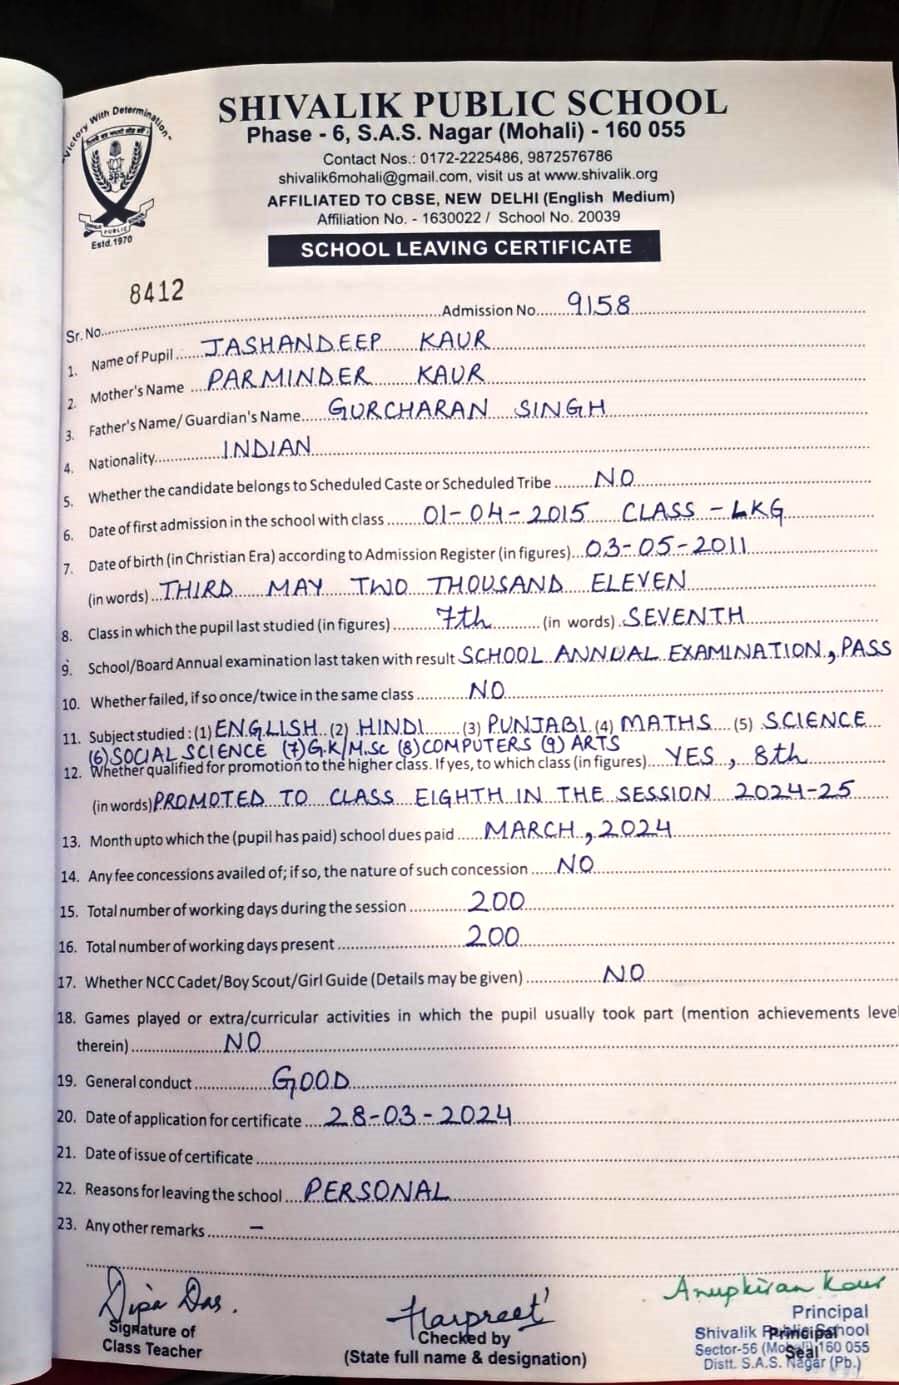 "Victory With Determination"
SPS
PUBLIC
Estd. 1970
SHIVALIK PUBLIC SCHOOL
Phase - 6, S.A.S. Nagar (Mohali) - 160 055
Contact Nos.: 0172-2225486, 9872576786
shivalik6mohali@gmail.com, visit us at www.shivalik.org
AFFILIATED TO CBSE, NEW DELHI (English Medium)
Affiliation No. - 1630022 / School No. 20039
SCHOOL LEAVING CERTIFICATE
8412
Sr. No. Admission No. 9158
1. Name of Pupil JASHANDEEP KAUR
2. Mother's Name PARMINDER KAUR
3. Father's Name/ Guardian's Name GURCHARAN SINGH
4. Nationality INDIAN
5. Whether the candidate belongs to Scheduled Caste or Scheduled Tribe NO
6. Date of first admission in the school with class 01-04-2015 CLASS - LKG
7. Date of birth (in Christian Era) according to Admission Register (in figures) 03-05-2011
(in words) THIRD MAY TWO THOUSAND ELEVEN
8. Class in which the pupil last studied (in figures) 7th (in words) SEVENTH
9. School/Board Annual examination last taken with result SCHOOL ANNUAL EXAMINATION, PASS
10. Whether failed, if so once/twice in the same class NO
11. Subject studied : (1) ENGLISH (2) HINDI (3) PUNJABI (4) MATHS (5) SCIENCE
(6) SOCIAL SCIENCE (7) G.K/M.Sc (8) COMPUTERS (9) ARTS
12. Whether qualified for promotion to the higher class. If yes, to which class (in figures) YES, 8th
(in words) PROMOTED TO CLASS EIGHTH IN THE SESSION 2024-25
13. Month upto which the (pupil has paid) school dues paid MARCH, 2024
14. Any fee concessions availed of; if so, the nature of such concession NO
15. Total number of working days during the session 200
16. Total number of working days present 200
17. Whether NCC Cadet/Boy Scout/Girl Guide (Details may be given) NO
18. Games played or extra/curricular activities in which the pupil usually took part (mention achievements leve
therein) NO
19. General conduct GOOD
20. Date of application for certificate 28-03-2024
21. Date of issue of certificate
22. Reasons for leaving the school PERSONAL
23. Any other remarks —
Dipa Das.
Signature of
Class Teacher
Harpreet
Checked by
(State full name & designation)
Anupkiran Kaur
Principal
Shivalik Public School
Principal
Sector-56 (Mohali) 160 055
Seal
Distt. S.A.S. Nagar (Pb.)